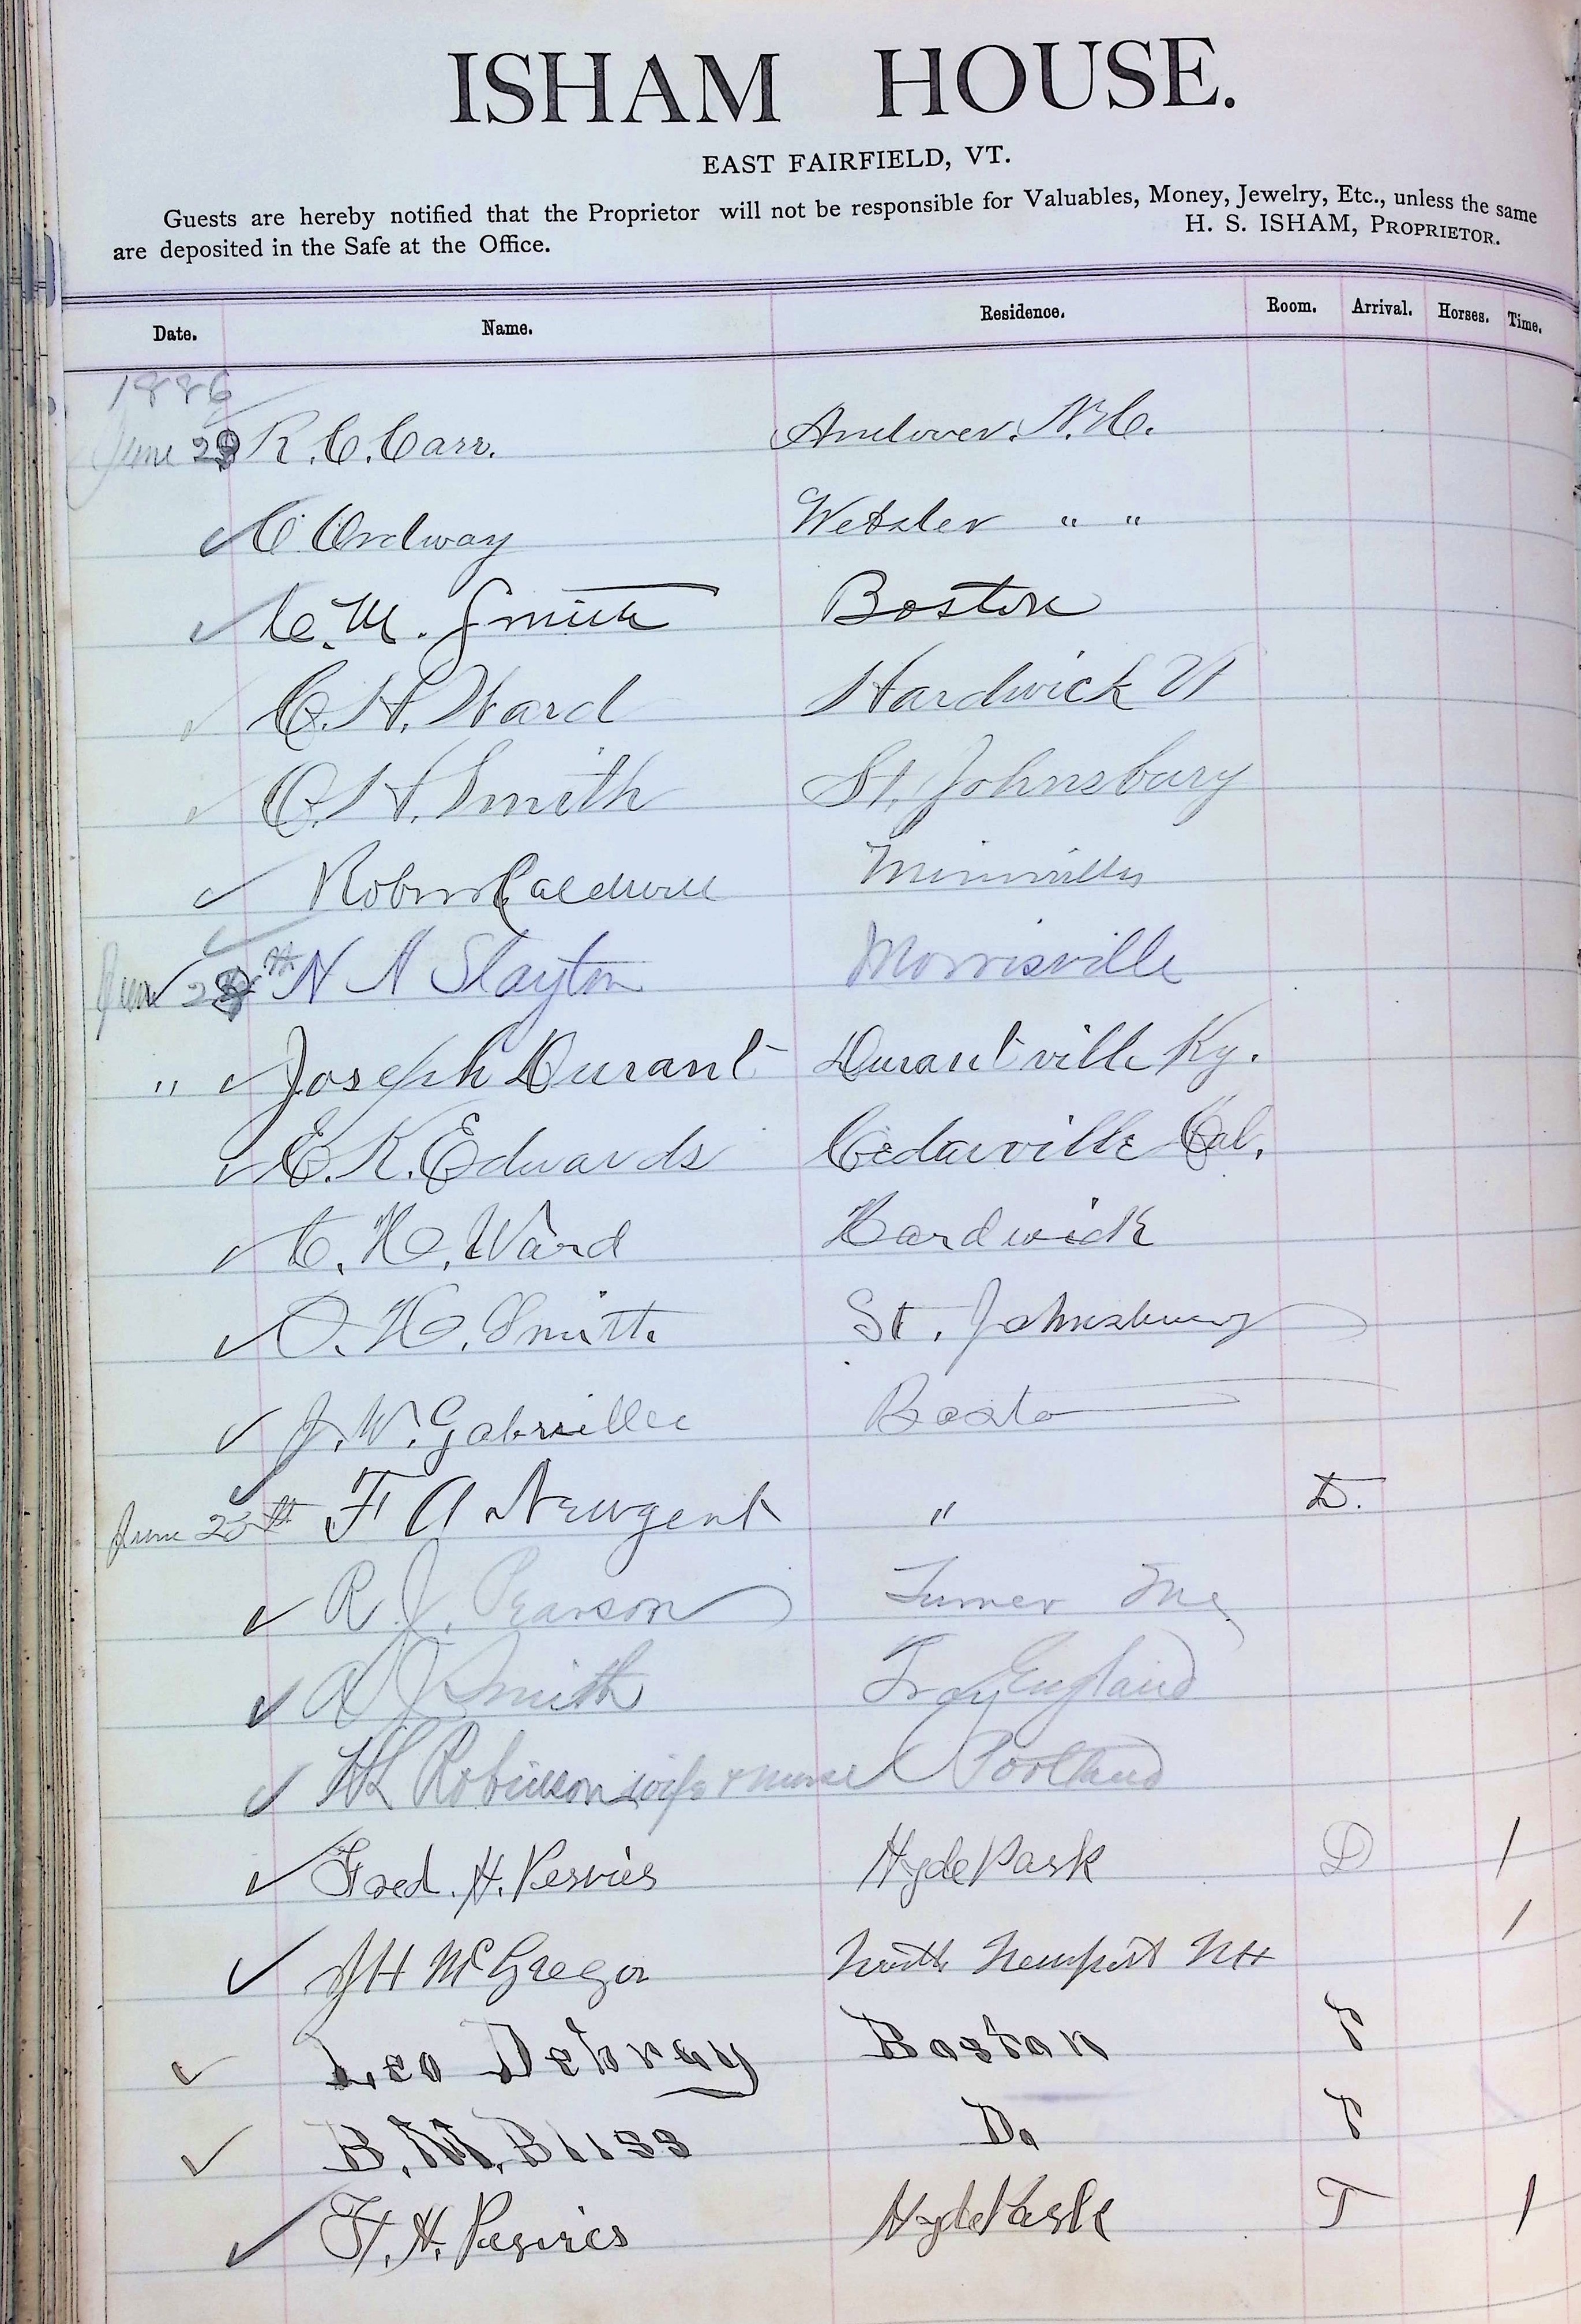 ISHAM HOUSE.
EAST FAIRFIELD, VT.
Guests are hereby notified that the Proprietor will not be responsible for Valuables, Money, Jewelry, Etc., unless the same
are deposited in the Safe at the Office. H. S. ISHAM, PROPRIETOR.
Date. Name. Residence. Room. Arrival. Horses. Time.
1886
June R. C. Carr. Andover. N.H.
C Ordway Webster " "
C. M. Smith Boston
C. H. Ward Hardwick Vt
O. H. Smith St. Johnsbury
Caldwell
June N A Slayton Morrisville
" Joseph Durant Durantville Ky.
E. K. Edwards Cedarville Cal.
C. H. Ward Hardwick
O. H. Smith St. Johnsbury
J. W. Boston
June F A Newgent " D.
R. J. Pearson Turner Me
Smith Troy England
Robinson wife & nurse Portland
Fred. H. Hyde Park D 1
McGregor North Newport NH 1
Leo Debray Boston T
B. M. Bliss Do T
F. H. Hyde Park T 1